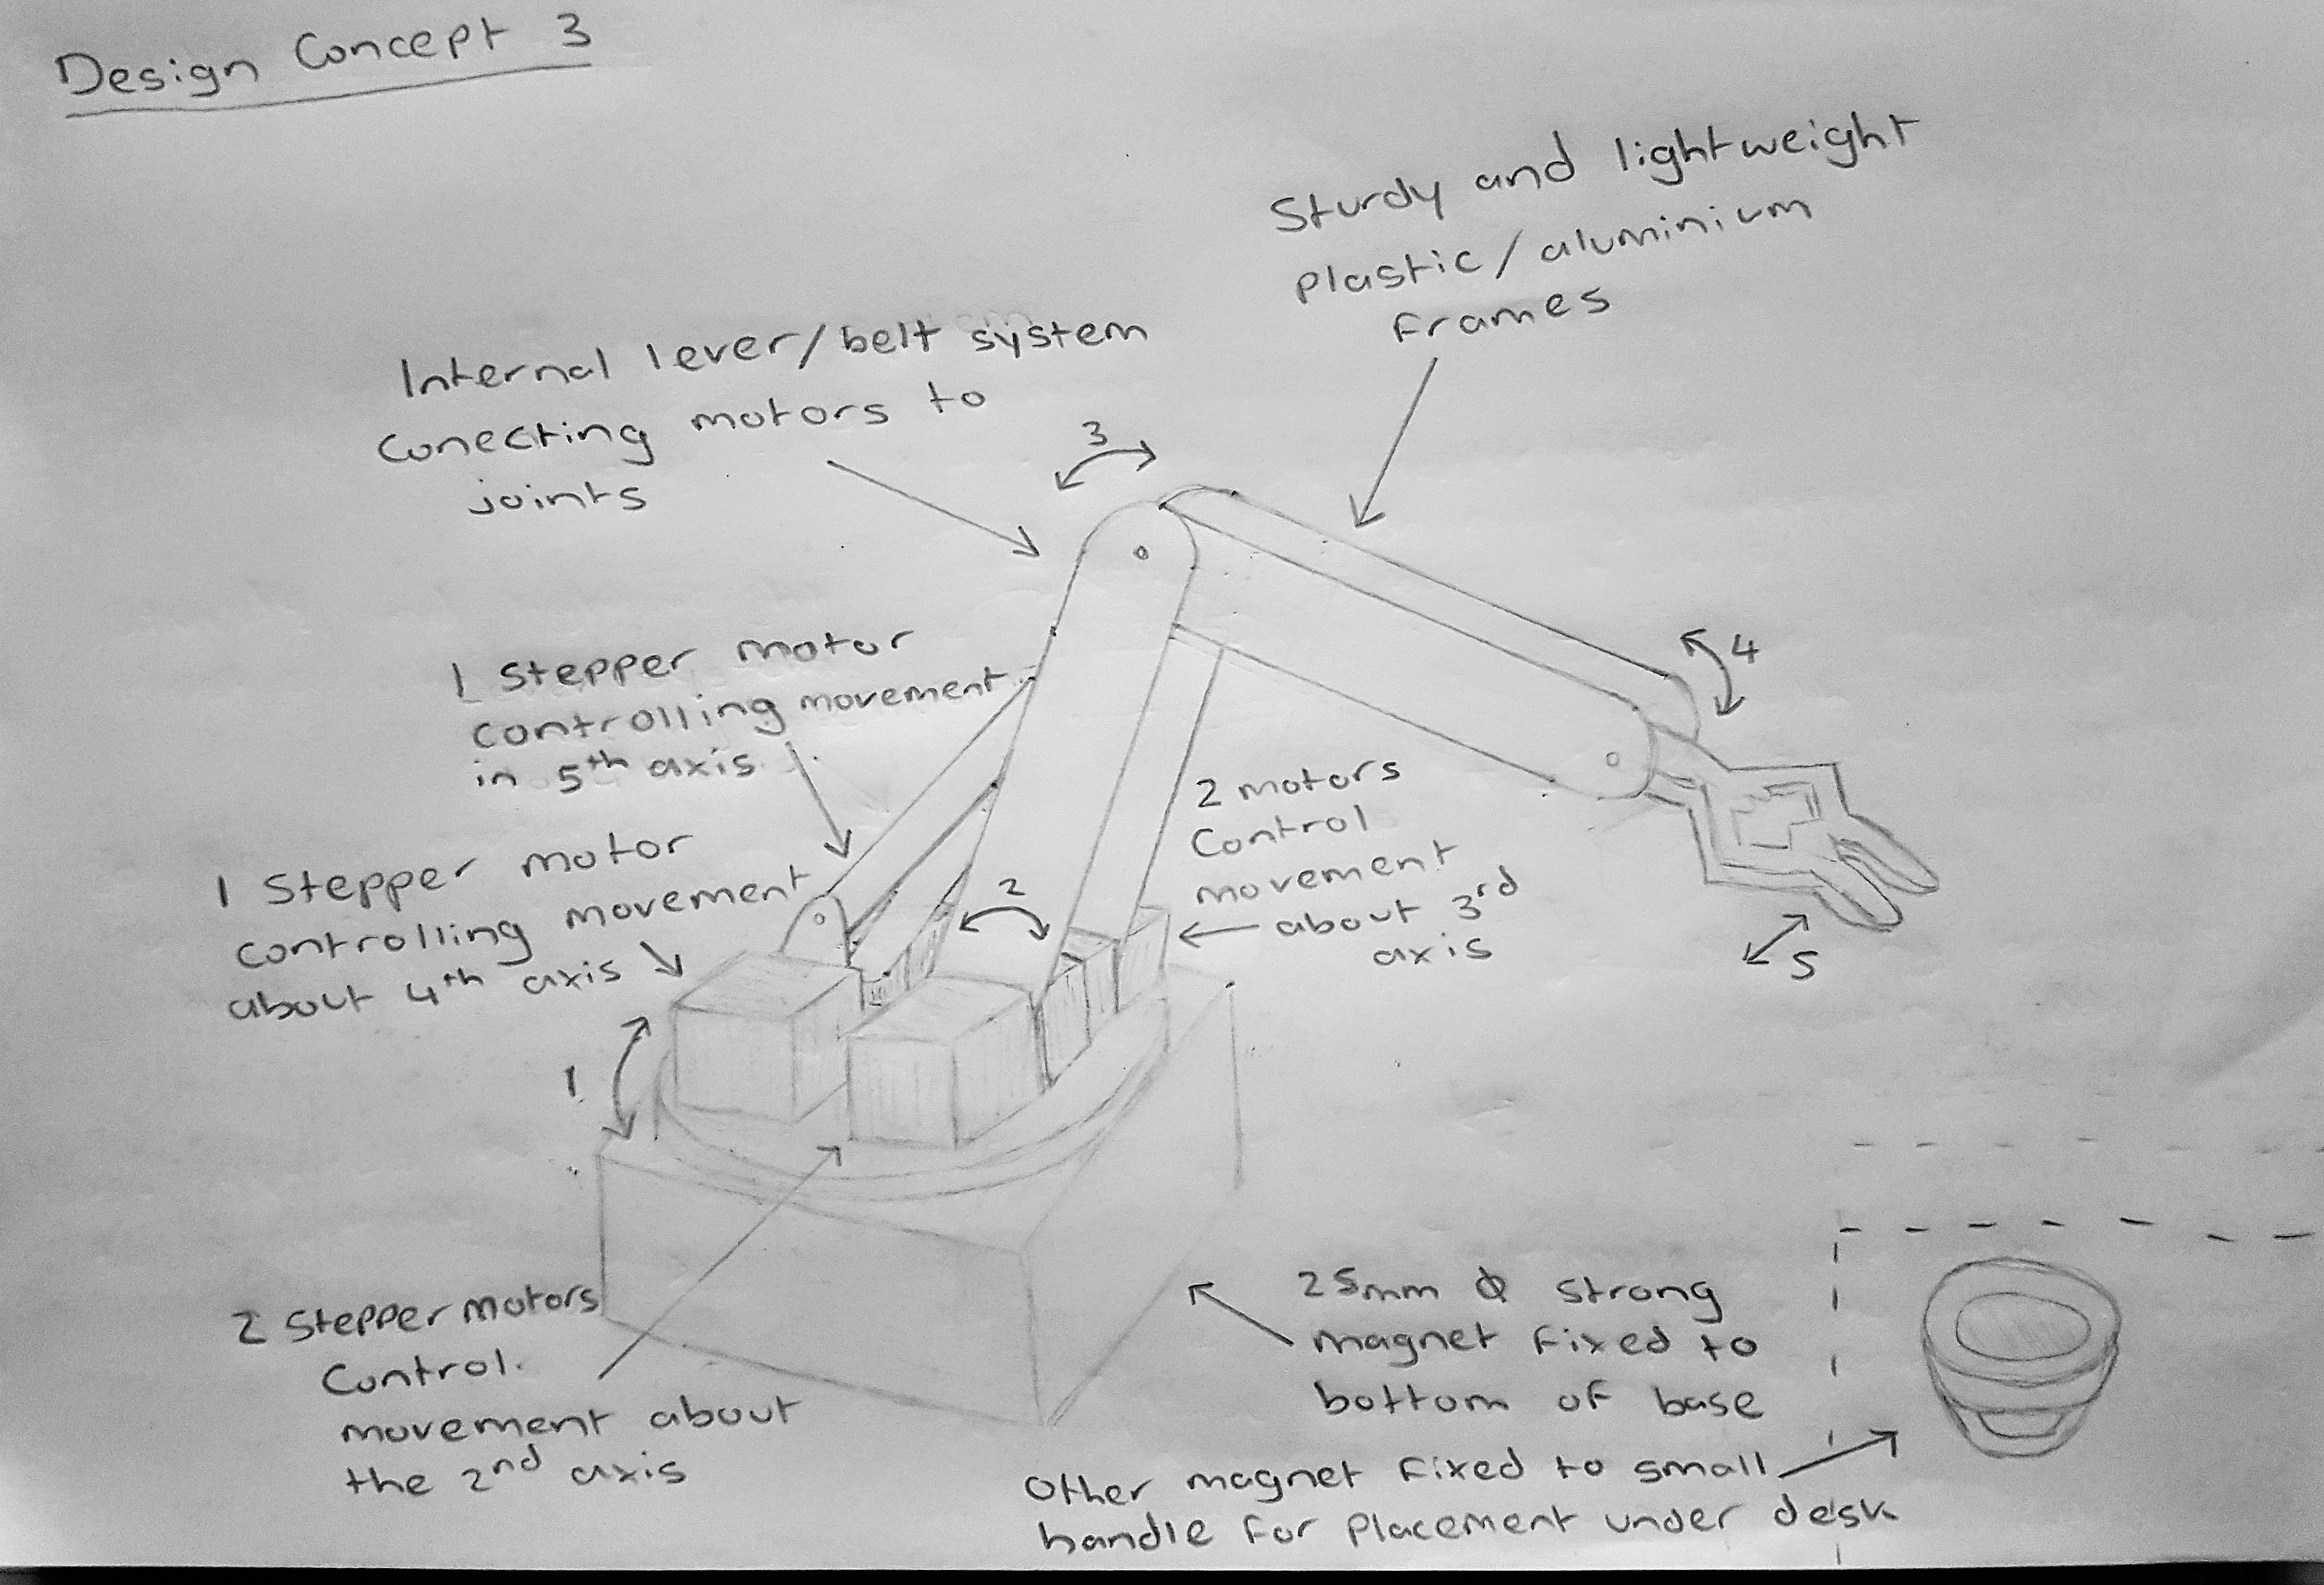 Design Concept 3
Sturdy and lightweight
plastic/aluminium
frames
Internal lever/belt system
conecting motors to
joints
3
1 stepper motor
controlling movement
in 5th axis
4
2 motors
control
movement
about 3rd
axis
1 Stepper motor
controlling movement
about 4th axis
2
5
1
2 Stepper motors
control.
movement about
the 2nd axis
25mm Φ strong
magnet fixed to
bottom of base
Other magnet fixed to small
handle for placement under desk